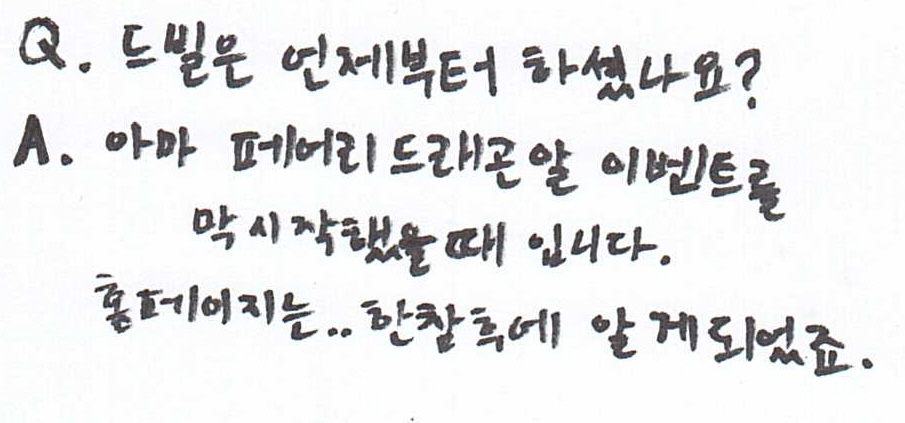 Q. 드빌은 언제부터 하셨나요?
A. 아마 페어리드래곤알 이벤트를
막시작했을때 입니다.
홈페이지는.. 한참후에 알게되었죠.